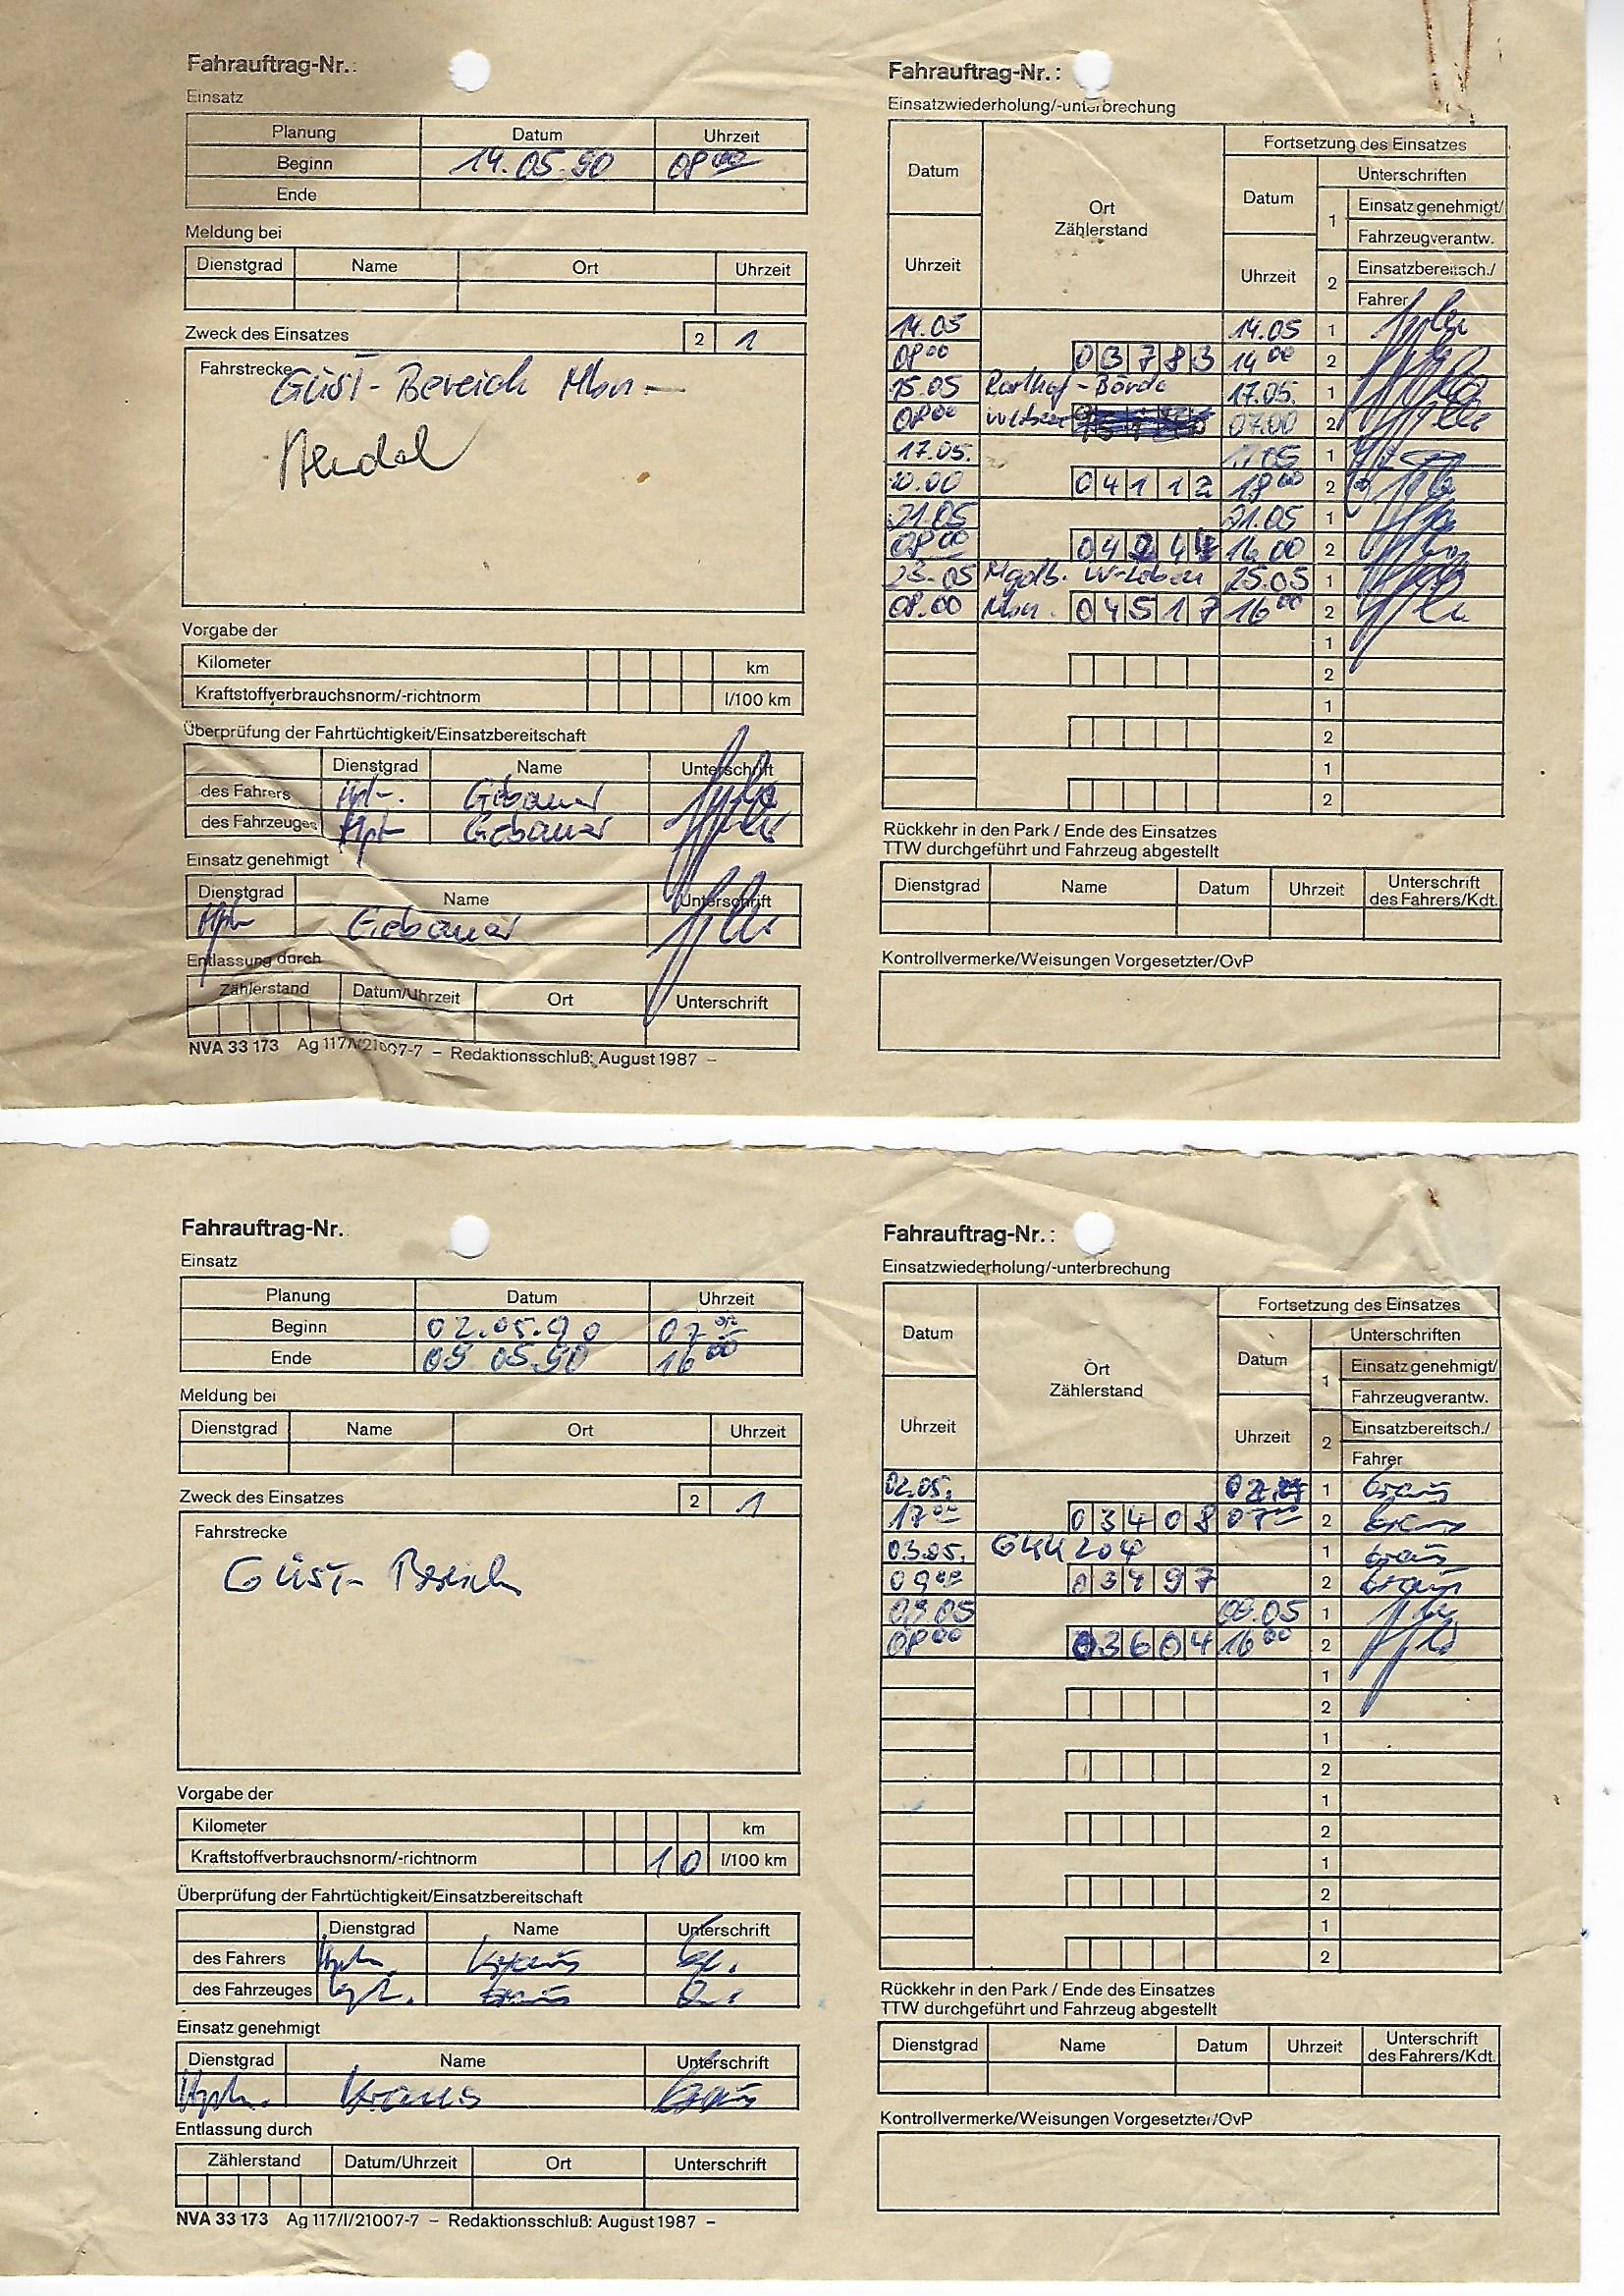 Fahrauftrag-Nr.:
Einsatz
Planung Datum Uhrzeit
Beginn 14.05.90 08 00
Ende
Meldung bei
Dienstgrad Name Ort Uhrzeit
Zweck des Einsatzes 2 1
Fahrstrecke
Güst-Bereich Mbn-
Stendal
Vorgabe der
Kilometer km
Kraftstoffverbrauchsnorm/-richtnorm l/100 km
Überprüfung der Fahrtüchtigkeit/Einsatzbereitschaft
Dienstgrad Name Unterschrift
des Fahrers Hptm. Gebauer
des Fahrzeuges Hptm Gebauer
Einsatz genehmigt
Dienstgrad Name Unterschrift
Hptm Gebauer
Entlassung durch
Zählerstand Datum/Uhrzeit Ort Unterschrift
NVA 33 173 Ag 117/I/21007-7 – Redaktionsschluß: August 1987 –
Fahrauftrag-Nr.:
Einsatzwiederholung/-unterbrechung
Fortsetzung des Einsatzes
Datum Unterschriften
Ort Datum 1 Einsatz genehmigt/
Zählerstand Fahrzeugverantw.
Uhrzeit Uhrzeit 2 Einsatzbereitsch./
Fahrer
14.05 14.05 1
08 00 03783 14 00 2
15.05 Börde 17.05. 1
08 00 07.00 2
17.05. 17.05 1
10.00 04112 18 00 2
21.05 21.05 1
08 00 16.00 2
23.05 Mgdb. W-Leben 25.05 1
08.00 Mbn. 04517 16 00 2
1
2
1
2
1
2
Rückkehr in den Park / Ende des Einsatzes
TTW durchgeführt und Fahrzeug abgestellt
Dienstgrad Name Datum Uhrzeit Unterschrift
des Fahrers/Kdt.
Kontrollvermerke/Weisungen Vorgesetzter/OvP
Fahrauftrag-Nr.
Einsatz
Planung Datum Uhrzeit
Beginn 02.05.90 07 00
Ende 09 05.90 16 00
Meldung bei
Dienstgrad Name Ort Uhrzeit
Zweck des Einsatzes 2 1
Fahrstrecke
Güst-Bereich
Vorgabe der
Kilometer km
Kraftstoffverbrauchsnorm/-richtnorm 10 l/100 km
Überprüfung der Fahrtüchtigkeit/Einsatzbereitschaft
Dienstgrad Name Unterschrift
des Fahrers Hptm. Kraus
des Fahrzeuges Hptm. Kraus
Einsatz genehmigt
Dienstgrad Name Unterschrift
Hptm. Kraus Kraus
Entlassung durch
Zählerstand Datum/Uhrzeit Ort Unterschrift
NVA 33 173 Ag 117/I/21007-7 – Redaktionsschluß: August 1987 –
Fahrauftrag-Nr.:
Einsatzwiederholung/-unterbrechung
Fortsetzung des Einsatzes
Datum Unterschriften
Ort Datum 1 Einsatz genehmigt/
Zählerstand Fahrzeugverantw.
Uhrzeit Uhrzeit 2 Einsatzbereitsch./
Fahrer
02.05. 1 Kraus
17 00 03408 07 00 2 Kraus
03.05. GKK 204 1 Kraus
09 00 03497 2 Kraus
09.05 09.05 1
08 00 03604 16 00 2
1
2
1
2
1
2
1
2
1
2
Rückkehr in den Park / Ende des Einsatzes
TTW durchgeführt und Fahrzeug abgestellt
Dienstgrad Name Datum Uhrzeit Unterschrift
des Fahrers/Kdt.
Kontrollvermerke/Weisungen Vorgesetzter/OvP